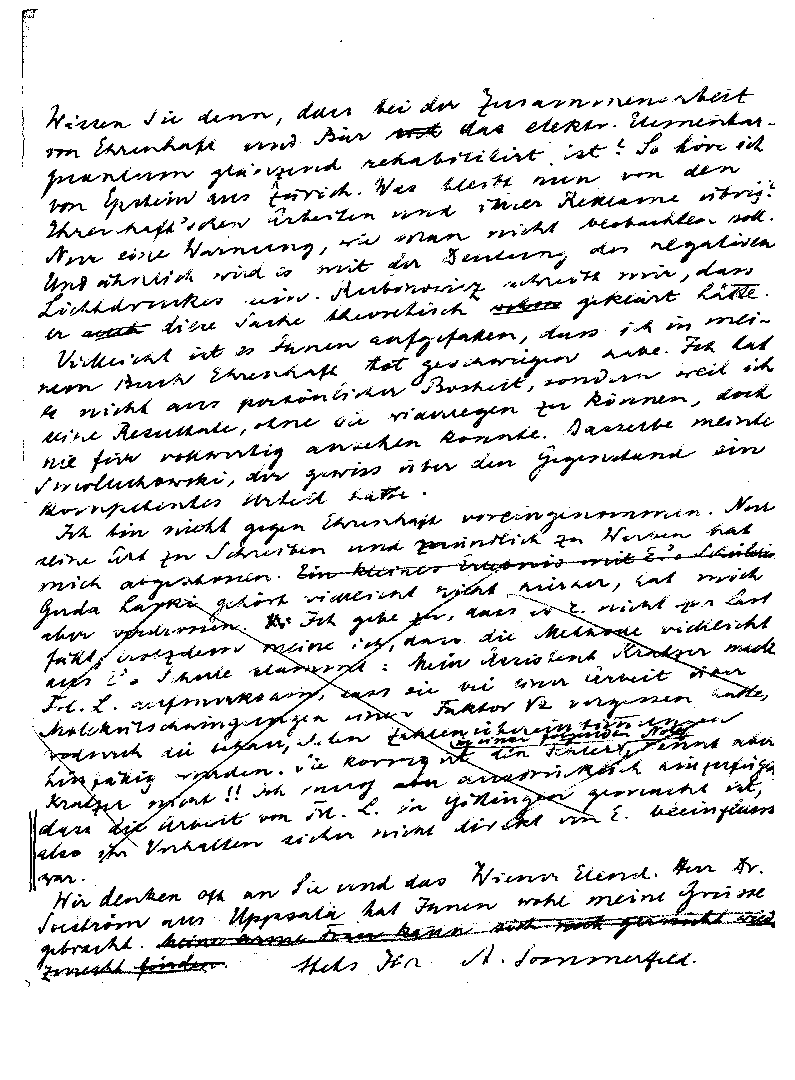 Wissen Sie denn, dass bei der Zusammenarbeit
von Ehrenhaft und Bär das elektr. Elementar-
quantum glänzend rehabilitirt ist? So höre ich
von Epstein aus Zürich. Was bleibt nun von den
Ehrenhaft'schen Arbeiten und ihrer Reklame übrig?
Nur eine Warnung, wie man nicht beobachten soll.
Und ähnlich wird es mit der Deutung des negativen
Lichtdruckes sein. Rubinowicz schreibt mir, dass
er auch diese Sache theoretisch schon geklärt hätte.
Vielleicht ist es Ihnen aufgefallen, dass ich in mei-
nem Buch Ehrenhaft tot geschwiegen habe. Ich tat
es nicht aus persönlicher Bosheit, sondern weil ich
seine Resultate, ohne sie widerlegen zu können, doch
nie für vollwertig ansehen konnte. Dasselbe meinte
Smoluchowski, der gewiss über den Gegenstand ein
kompetentes Urteil hatte.
Ich bin nicht gegen Ehrenhaft voreingenommen. Nur
seine Art zu Schreiben und mündlich zu Werben hat
mich abgestossen. Ein kleines Erlebnis mit E's Schülerin
Gerda Laski gehört vielleicht nicht hierher, hat mich
aber verdrossen. Ich gebe zu, dass es E. nicht zur Last
fällt, trotzdem meine ich, dass die Methode vielleicht
aus E's Schule stammt: Mein Assistent Kratzer macht
Frl. L. aufmerksam, dass sie bei einer Arbeit über
Molekülschwingungen einen Faktor √2 vergessen hatte,
wodurch die schönen Zahlenübereinstimmungen
in einer folgenden Note
hinfällig wurden. Sie korrigirt den Fehler, nennt aber
Kratzer nicht!! Ich muss aber ausdrücklich hinzufügen,
dass die Arbeit von Frl. L. in Göttingen gemacht ist,
also ihr Verhalten sicher nicht direkt von E. beeinflusst
war.
Wir denken oft an Sie und das Wiener Elend. Herr Dr.
aus Uppsala hat Ihnen wohl meine Grüsse
gebracht. Meine arme Frau kann sich noch garnicht
zurecht finden.
Stets Ihr A. Sommerfeld.